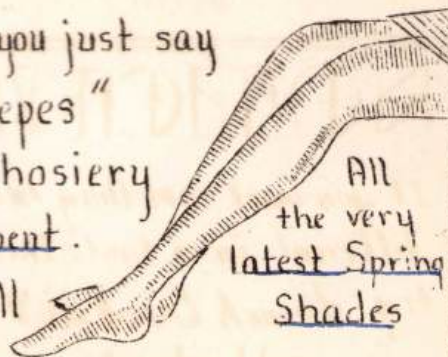 you just say
epes"
hosiery
ent.
ll
All
the very
latest Spring
Shades